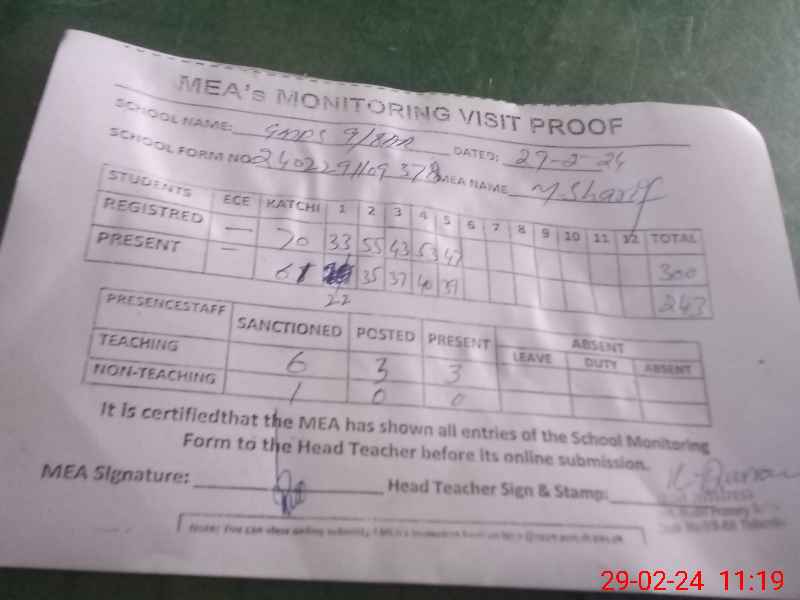 MEA's MONITORING VISIT PROOF
SCHOOL NAME: DATED: 29-2-24
SCHOOL FORM NO MEA NAME M. Sharif
STUDENTS ECE KATCHI 1 2 3 4 5 6 7 8 9 10 11 12 TOTAL
REGISTRED — 70 33 55 43 53 47 300
PRESENT — 61 35 37 40 39 243
22
PRESENCESTAFF SANCTIONED POSTED PRESENT ABSENT
LEAVE DUTY ABSENT
TEACHING 6 3 3
NON-TEACHING 1 0 0
It is certifiedthat the MEA has shown all entries of the School Monitoring
Form to the Head Teacher before its online submission.
MEA Signature: Head Teacher Sign & Stamp:
29-02-24 11:19